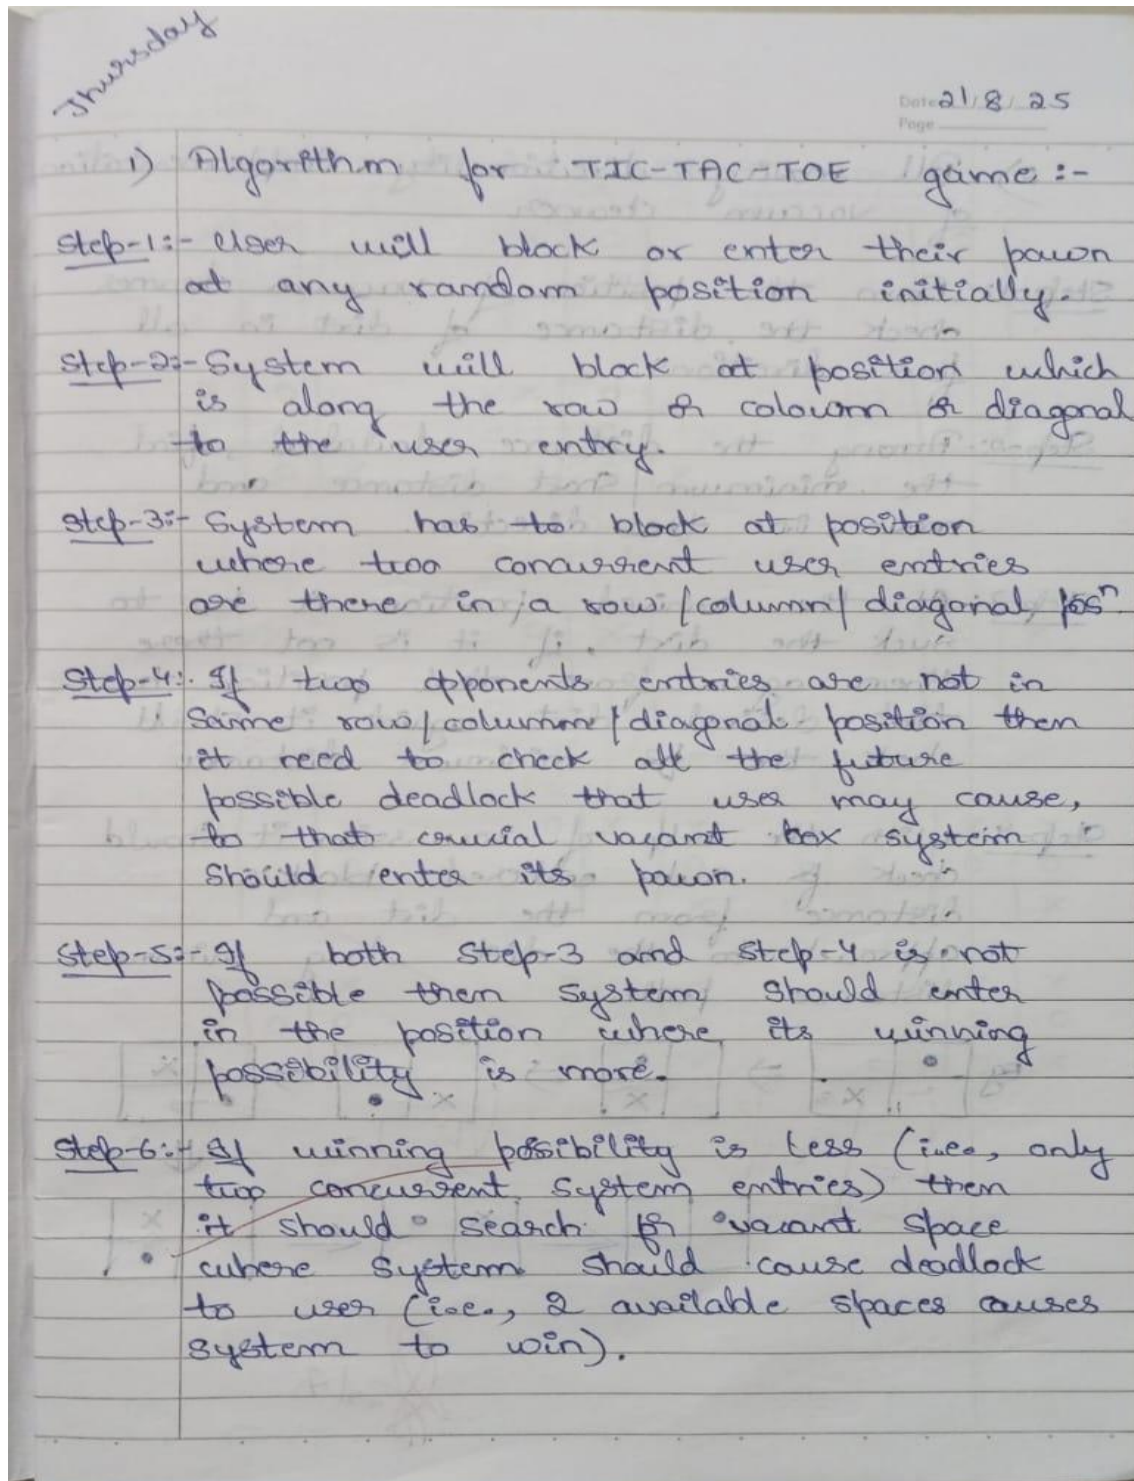 Thursday
Date 21/8/25
Page
1) Algorithm for TIC-TAC-TOE game :-
Step-1:- User will block or enter their pawn
at any random position initially.
Step-2:- System will block at position which
is along the row or coloumn or diagonal
to the user entry.
Step-3:- System has to block at position
where two concurrent user entries
are there in a row/column/diagonal posⁿ.
Step-4:- If two opponents entries are not in
same row/column/diagonal position then
it need to check all the future
possible deadlock that user may cause,
to that crucial vacant box system
should enter its pawn.
Step-5:- If both Step-3 and Step-4 is not
possible then system should enter
in the position where its winning
possibility is more.
Step-6:- If winning possibility is less (i.e., only
two concurrent system entries) then
it should search for vacant space
where system should cause deadlock
to user (i.e., 2 available spaces causes
system to win).